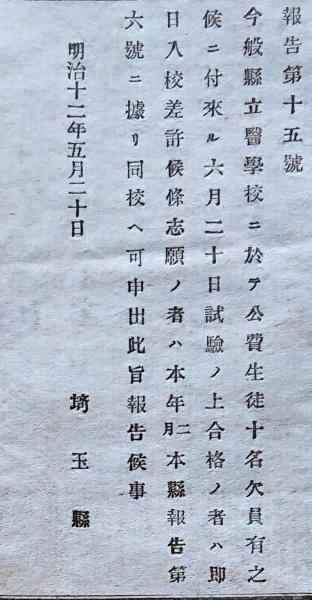 報告第十五號
今般縣立醫學校ニ於テ公費生徒十名欠員有之
候ニ付來ル六月二十日試驗ノ上合格ノ者ハ即
日入校差許候條志願ノ者ハ本年二月本縣報告第
六號ニ據リ同校ヘ可申出此旨報告候事
明治十二年五月二十日
埼玉縣